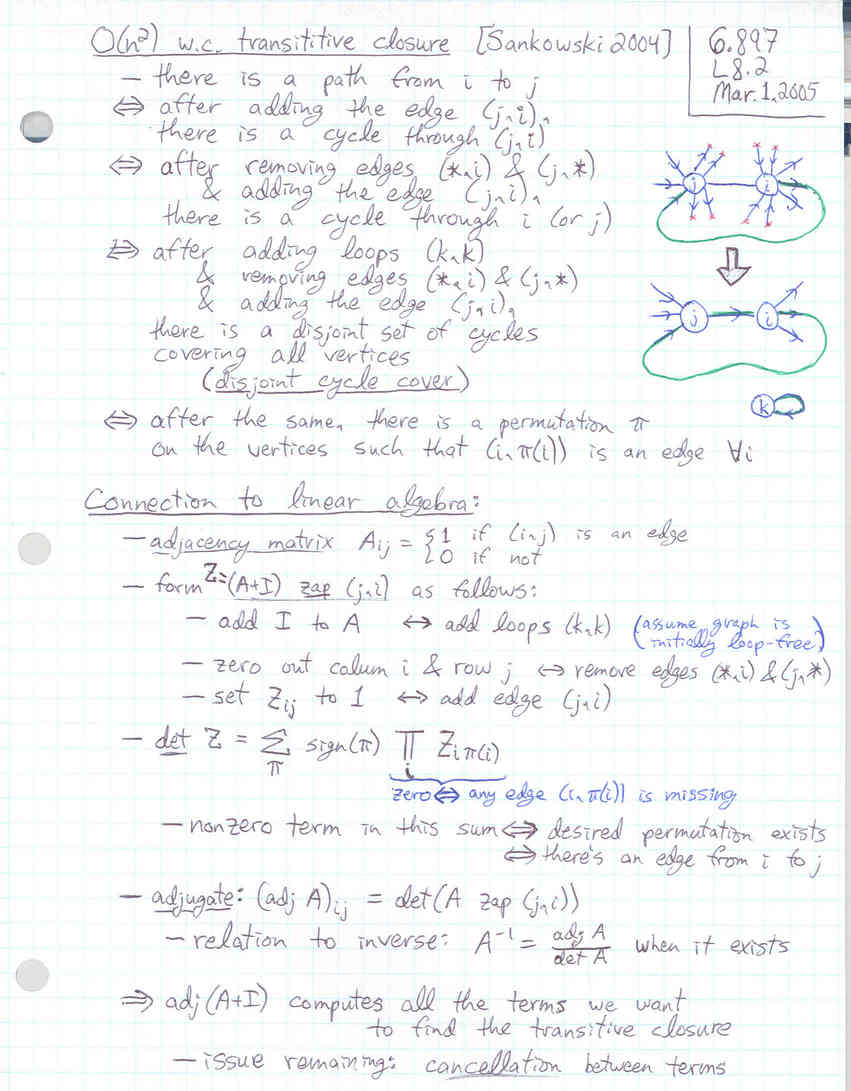 O(n²) w.c. transititive closure [Sankowski 2004]
6.897
L8.2
Mar. 1, 2005
– there is a path from i to j
⇔ after adding the edge (j,i),
there is a cycle through (j,i)
⇔ after removing edges (*,i) & (j,*)
& adding the edge (j,i),
there is a cycle through i (or j)
⇔ after adding loops (k,k)
& removing edges (*,i) & (j,*)
& adding the edge (j,i),
there is a disjoint set of cycles
covering all vertices
(disjoint cycle cover)
⇔ after the same, there is a permutation π
on the vertices such that (i,π(i)) is an edge ∀i
j i
j i
k
Connection to linear algebra:
– adjacency matrix A_ij = {1 if (i,j) is an edge
{0 if not
– form Z=(A+I) zap (j,i) as follows:
– add I to A ↔ add loops (k,k) (assume graph is
initially loop-free)
– zero out colum i & row j ↔ remove edges (*,i) & (j,*)
– set Z_ij to 1 ↔ add edge (j,i)
– det Z = Σ_π sign(π) ∏_i Z_iπ(i)
zero ⇔ any edge (i,π(i)) is missing
– nonzero term in this sum ⇔ desired permutation exists
⇔ there's an edge from i to j
– adjugate: (adj A)_ij = det(A zap (j,i))
– relation to inverse: A⁻¹ = adj A / det A when it exists
⇒ adj(A+I) computes all the terms we want
to find the transitive closure
– issue remaining: cancellation between terms